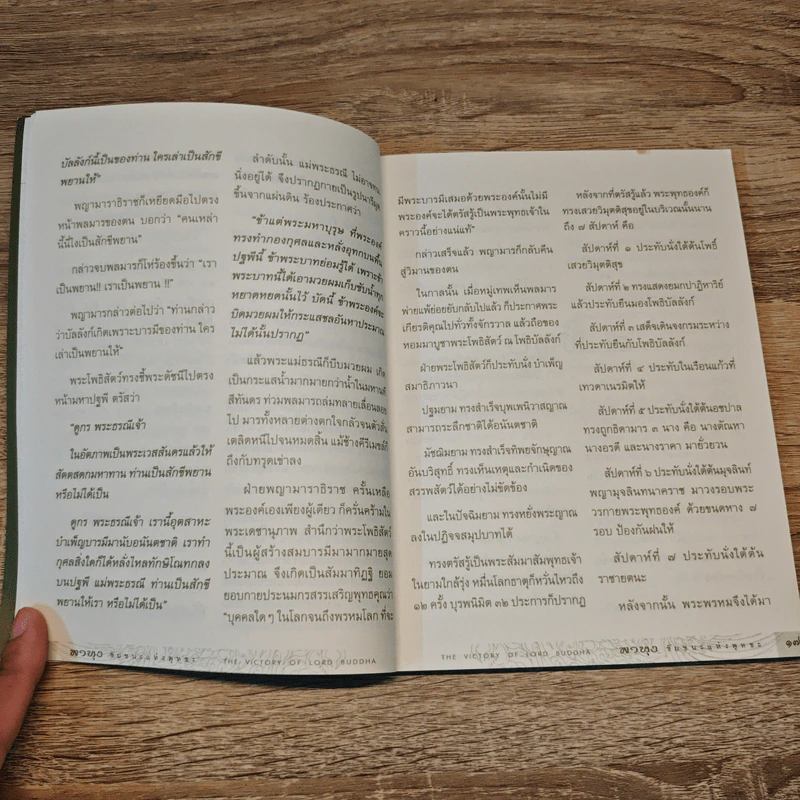 บัลลังก์นี้เป็นของท่าน ใครเล่าเป็นสักขี
พยานให้"
พญามาราธิราชก็เหยียดมือไปตรง
หน้าพลมารของตน บอกว่า "คนเหล่า
นี้นี่ไงเป็นสักขีพยาน"
กล่าวจบพลมารก็โห่ร้องขึ้นว่า "เรา
เป็นพยาน!! เราเป็นพยาน !!"
พญามารกล่าวต่อไปว่า "ท่านกล่าว
ว่าบัลลังก์เกิดเพราะบารมีของท่าน ใคร
เล่าเป็นพยานให้"
พระโพธิสัตว์ทรงชี้พระดัชนีไปตรง
หน้ามหาปฐพี ตรัสว่า
"ดูกร พระธรณีเจ้า
ในอัตภาพเป็นพระเวสสันดรแล้วให้
สัตตสดกมหาทาน ท่านเป็นสักขีพยาน
หรือไม่ได้เป็น
ดูกร พระธรณีเจ้า เรานี้อุตสาหะ
บำเพ็ญบารมีมานับอนันตชาติ เราทำ
กุศลสิ่งใดก็ได้หลั่งไหลทักษิโณทกลง
บนปฐพี แม่พระธรณี ท่านเป็นสักขี
พยานให้เรา หรือไม่ได้เป็น"
ลำดับนั้น แม่พระธรณี ไม่อาจทน
นิ่งอยู่ได้ จึงปรากฏกายเป็นรูปนารีผุด
ขึ้นจากแผ่นดิน ร้องประกาศว่า
"ข้าแต่พระมหาบุรุษ ที่พระองค์
ทรงทำกองกุศลและหลั่งอุทกบนพื้น
ปฐพีนี้ ข้าพระบาทย่อมรู้ได้ เพราะข้า
พระบาทนี้ได้เอามวยผมเก็บซับน้ำทุก
หยาดหยดนั้นไว้ บัดนี้ ข้าพระองค์จะ
บิดมวยผมให้กระแสชลอันหาประมาณ
ไม่ได้นั้นปรากฏ"
แล้วพระแม่ธรณีก็บีบมวยผม เกิด
เป็นกระแสน้ำมากมายกว่าน้ำในมหานที
สีทันดร ท่วมพลมารถล่มทลายเลื่อนลอย
ไป มารทั้งหลายต่างตกใจกลัวจนตัวสั่น
เตลิดหนีไปจนหมดสิ้น แม้ช้างคีรีเมขล์ก็
ถึงกับทรุดเข่าลง
ฝ่ายพญามาราธิราช ครั้นเหลือ
พระองค์เองเพียงผู้เดียว ก็ครั่นคร้ามใน
พระเดชานุภาพ สำนึกว่าพระโพธิสัตว์
นี้เป็นผู้สร้างสมบารมีมามากมายสุด
ประมาณ จึงเกิดเป็นสัมมาทิฏฐิ ยอม
ยอบกายประนมกรสรรเสริญพุทธคุณว่า
"บุคคลใดๆ ในโลกจนถึงพรหมโลก ที่จะ
พาหุง ชัยชนะแห่งพุทธะ THE VICTORY OF LORD BUDDHA
มีพระบารมีเสมอด้วยพระองค์นั้นไม่มี
พระองค์จะได้ตรัสรู้เป็นพระพุทธเจ้าใน
คราวนี้อย่างแน่แท้"
กล่าวเสร็จแล้ว พญามารก็กลับคืน
สู่วิมานของตน
ในกาลนั้น เมื่อหมู่เทพเห็นพลมาร
พ่ายแพ้ย่อยยับกลับไปแล้ว ก็ประกาศพระ
เกียรติคุณไปทั่วทั้งจักรวาล แล้วถือของ
หอมมาบูชาพระโพธิสัตว์ ณ โพธิบัลลังก์
ฝ่ายพระโพธิสัตว์ก็ประทับนั่ง บำเพ็ญ
สมาธิภาวนา
ปฐมยาม ทรงสำเร็จบุพเพนิวาสญาณ
สามารถระลึกชาติได้อนันตชาติ
มัชฌิมยาม ทรงสำเร็จทิพยจักษุญาณ
อันบริสุทธิ์ ทรงเห็นเหตุและกำเนิดของ
สรรพสัตว์ได้อย่างไม่ขัดข้อง
และในปัจฉิมยาม ทรงหยั่งพระญาณ
ลงในปฏิจจสมุปบาทได้
ทรงตรัสรู้เป็นพระสัมมาสัมพุทธเจ้า
ในยามใกล้รุ่ง หมื่นโลกธาตุก็หวั่นไหวถึง
๑๒ ครั้ง บุรพนิมิต ๓๒ ประการก็ปรากฏ
หลังจากที่ตรัสรู้แล้ว พระพุทธองค์ก็
ทรงเสวยวิมุตติสุขอยู่ในบริเวณนั้นนาน
ถึง ๗ สัปดาห์ คือ
สัปดาห์ที่ ๑ ประทับนั่งใต้ต้นโพธิ์
เสวยวิมุตติสุข
สัปดาห์ที่ ๒ ทรงแสดงยมกปาฏิหาริย์
แล้วประทับยืนมองโพธิบัลลังก์
สัปดาห์ที่ ๓ เสด็จเดินจงกรมระหว่าง
ที่ประทับยืนกับโพธิบัลลังก์
สัปดาห์ที่ ๔ ประทับในเรือนแก้วที่
เทวดาเนรมิตให้
สัปดาห์ที่ ๕ ประทับนั่งใต้ต้นอชปาล
ทรงถูกธิดามาร ๓ นาง คือ นางตัณหา
นางอรดี และนางราคา มายั่วยวน
สัปดาห์ที่ ๖ ประทับนั่งใต้ต้นมุจลินท์
พญามุจลินทนาคราช มาวงรอบพระ
วรกายพระพุทธองค์ ด้วยขนดหาง ๗
รอบ ป้องกันฝนให้
สัปดาห์ที่ ๗ ประทับนั่งใต้ต้น
ราชายตนะ
หลังจากนั้น พระพรหมจึงได้มา
THE VICTORY OF LORD BUDDHA พาหุง ชัยชนะแห่งพุทธะ ๑๗